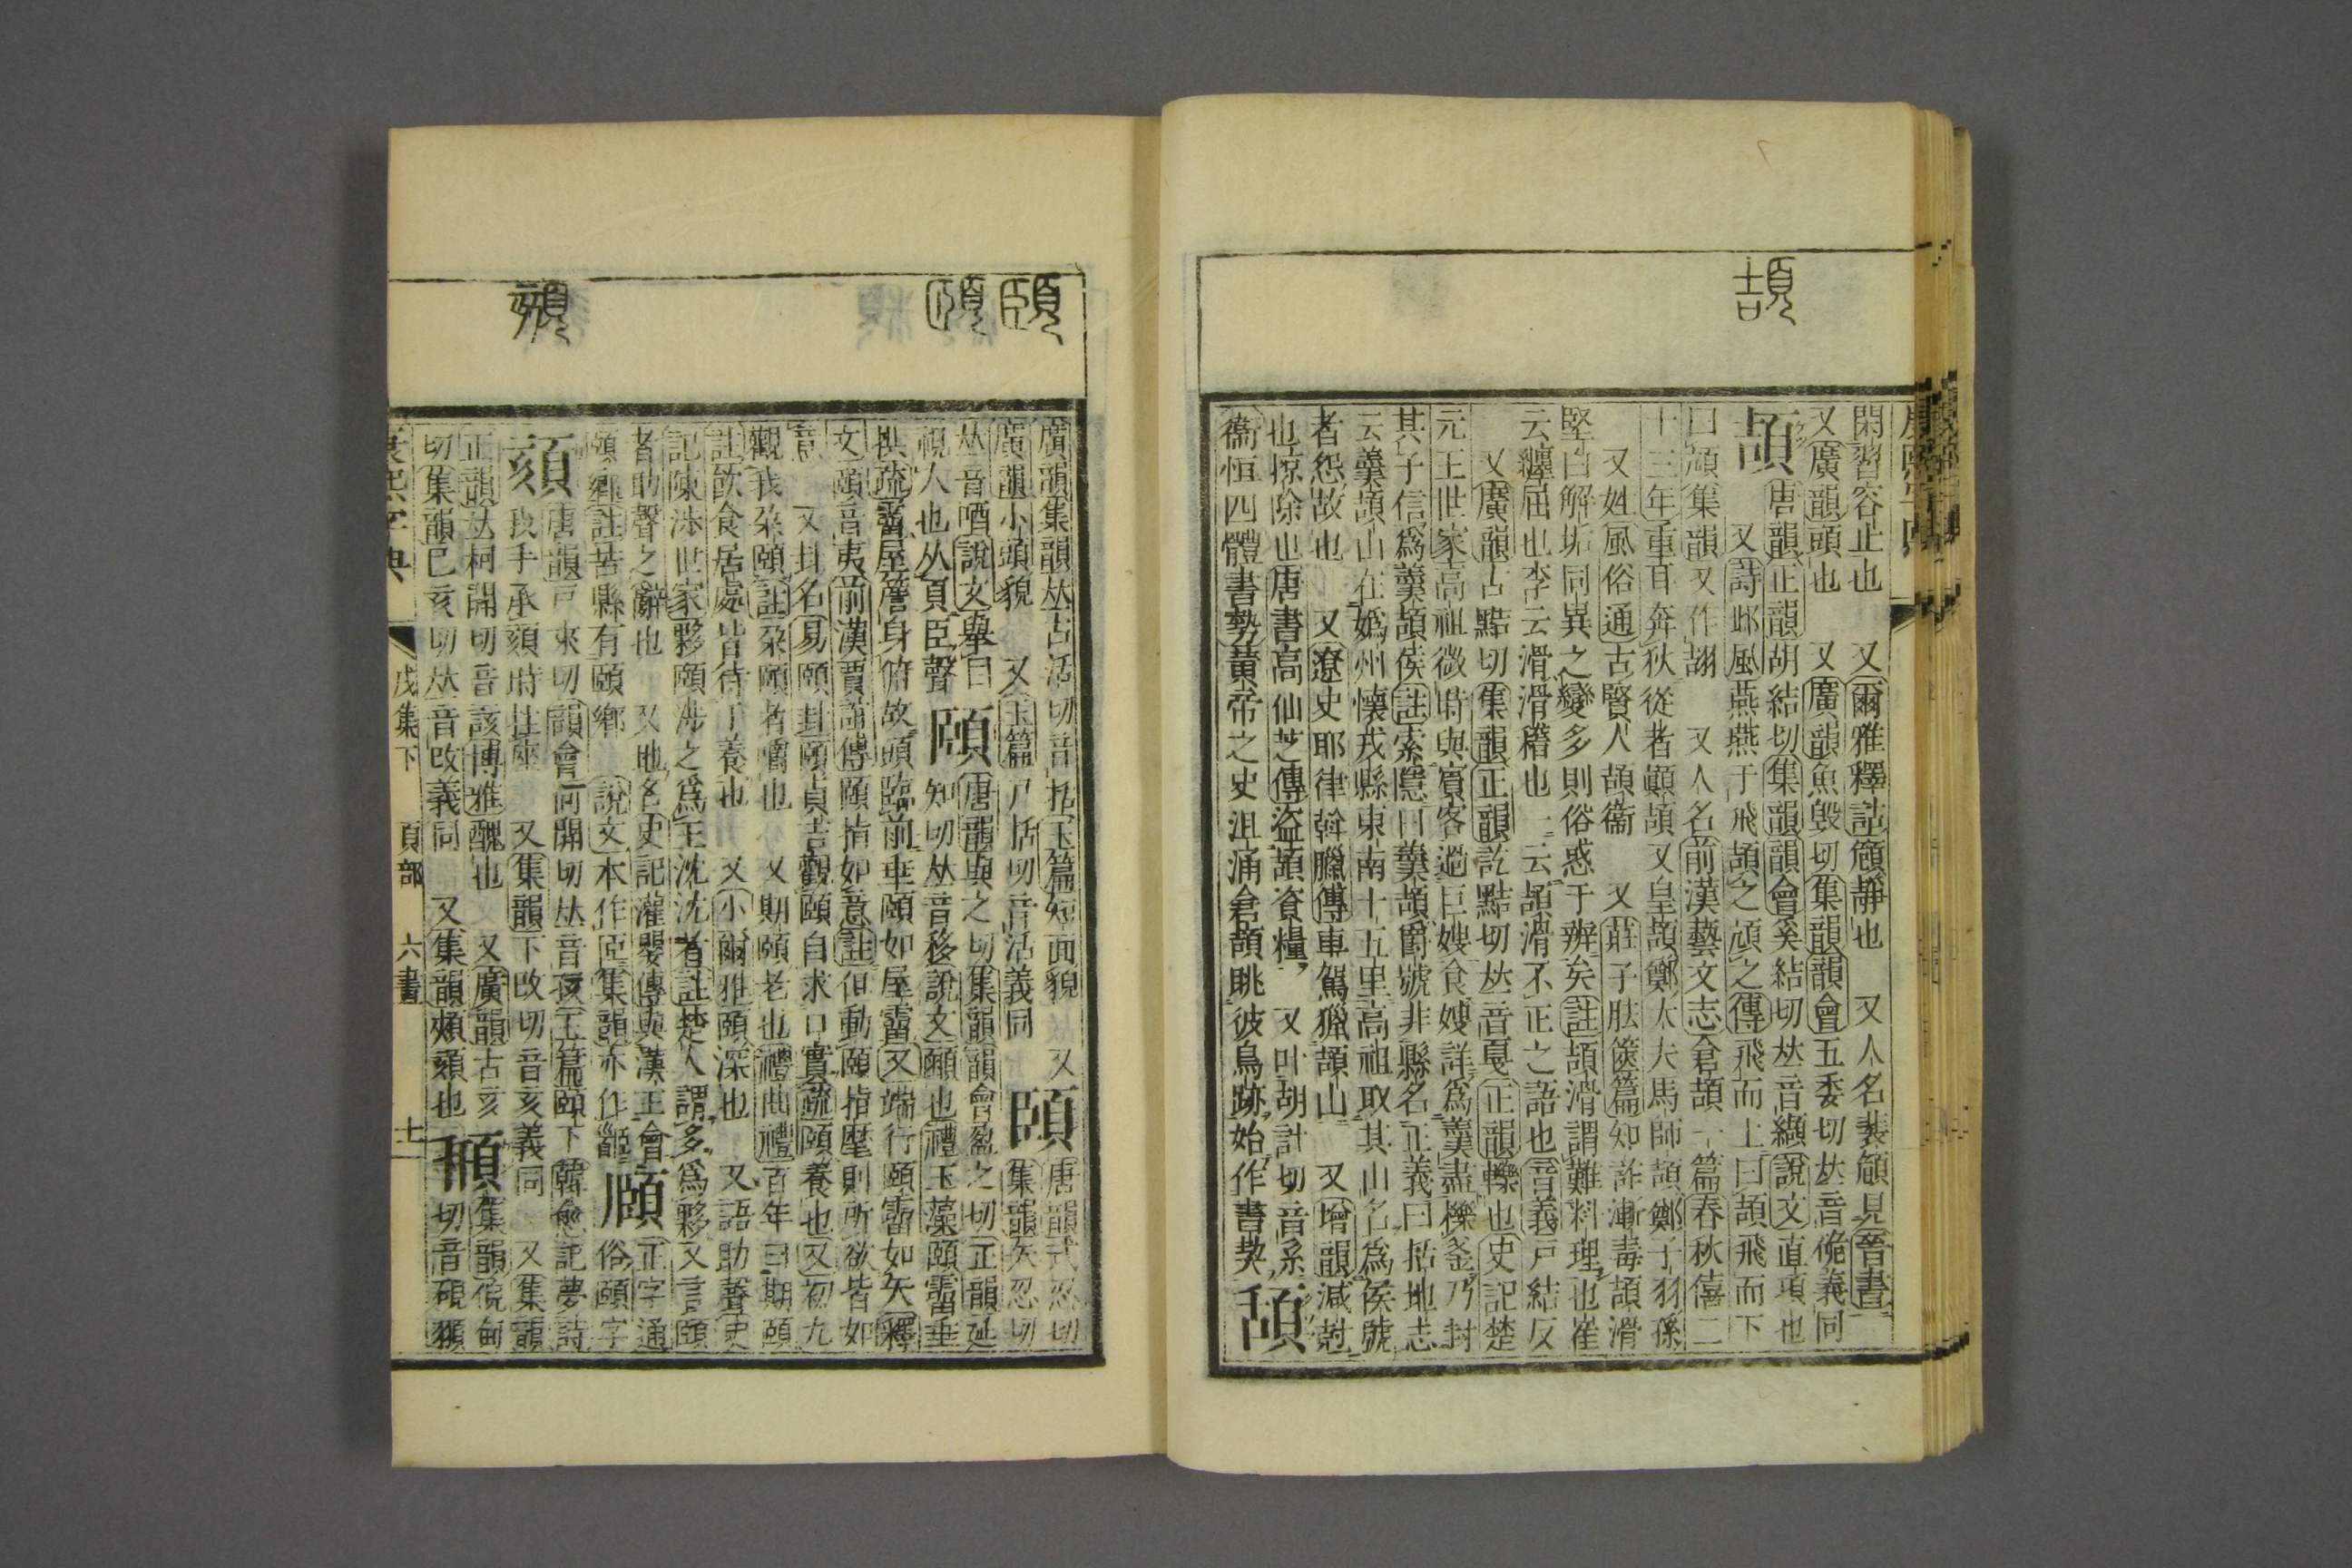 頡
閑習容止也　又爾雅釋詁頠靜也　又人名裴頠見晉書
又廣韻頭也　又廣韻魚毀切集韻韻會五委切𠀤音硊義同
頡
唐韻正韻胡結切集韻韻會奚結切𠀤音纈說文直項也
又詩邶風燕燕于飛頡之頏之傳飛而上曰頡飛而下
曰頏集韻又作翓　又人名前漢藝文志倉頡一篇春秋僖二
十三年重耳奔狄從者顚頡又皇頡鄭大夫馬師頡鄭子羽孫
又姓風俗通古賢人頡衞　又莊子胠篋篇知詐漸毒頡滑
堅白解垢同異之變多則俗惑于辨矣註頡滑謂難料理也崔
云纏屈也李云滑滑稽也一云頡滑不正之語也音義戶結反
又廣韻古黠切集韻正韻訖黠切𠀤音戛正韻轢也史記楚
元王世家高祖微時與賓客過巨嫂食嫂詳爲羹盡櫟釜乃封
其子信爲羹頡侯註索隱曰羹頡爵號非縣名正義曰括地志
云羹頡山在嬀州懷戎縣東南十五里高祖取其山名爲侯號
者怨故也　又遼史耶律斡臘傳車駕獵頡山　又增韻減尅
也掠除也唐書高仙芝傳盜頡資糧　又叶胡計切音系
衞恒四體書勢黃帝之史沮涌倉頡眺彼鳥跡始作書契
頢
頤　頤　頦
廣韻集韻𠀤古活切音括玉篇短面貌　又
廣韻小頭貌　又玉篇尸括切音活義同
頣
唐韻式忍切集韻矢忍切
𠀤音哂說文舉目視人也从頁臣聲
頤
唐韻與之切集韻韻會盈之切正韻延
知切𠀤音移說文顄也禮玉藻頤霤垂
拱疏霤屋簷身俯故頭臨前垂頤如屋霤又端行頤霤如矢釋
文頤音夷前漢賈誼傳頤指如意註但動頤指麾則所欲皆如
意　又卦名易頤卦頤貞吉觀頤自求口實疏頤養也又初九
觀我朶頤註朶頤者嚼也　又期頤老也禮曲禮百年曰期頤
註飮食居處皆待于養也　又小爾雅頤深也　又語助聲史
記陳涉世家夥頤涉之爲王沈沈者註楚人謂多爲夥又言頤
者助聲之辭也　又地名史記灌嬰傳與漢王會
頤鄕註苦縣有頤鄕　說文本作𦣞集韻亦作
𩠡
正字通
俗頤字
頦
唐韻戶來切韻會何開切𠀤音孩玉篇頤下韓愈記夢詩
我手承頦肘拄座　又集韻下改切音亥義同　又集韻
正韻𠀤柯開切音該博雅醜也　又廣韻古亥
切集韻己亥切𠀤音改義同　又集韻頰頦也
䪿
集韻倪甸
切音硯獮
康熙字典　戌集下　頁部　六畫　十一